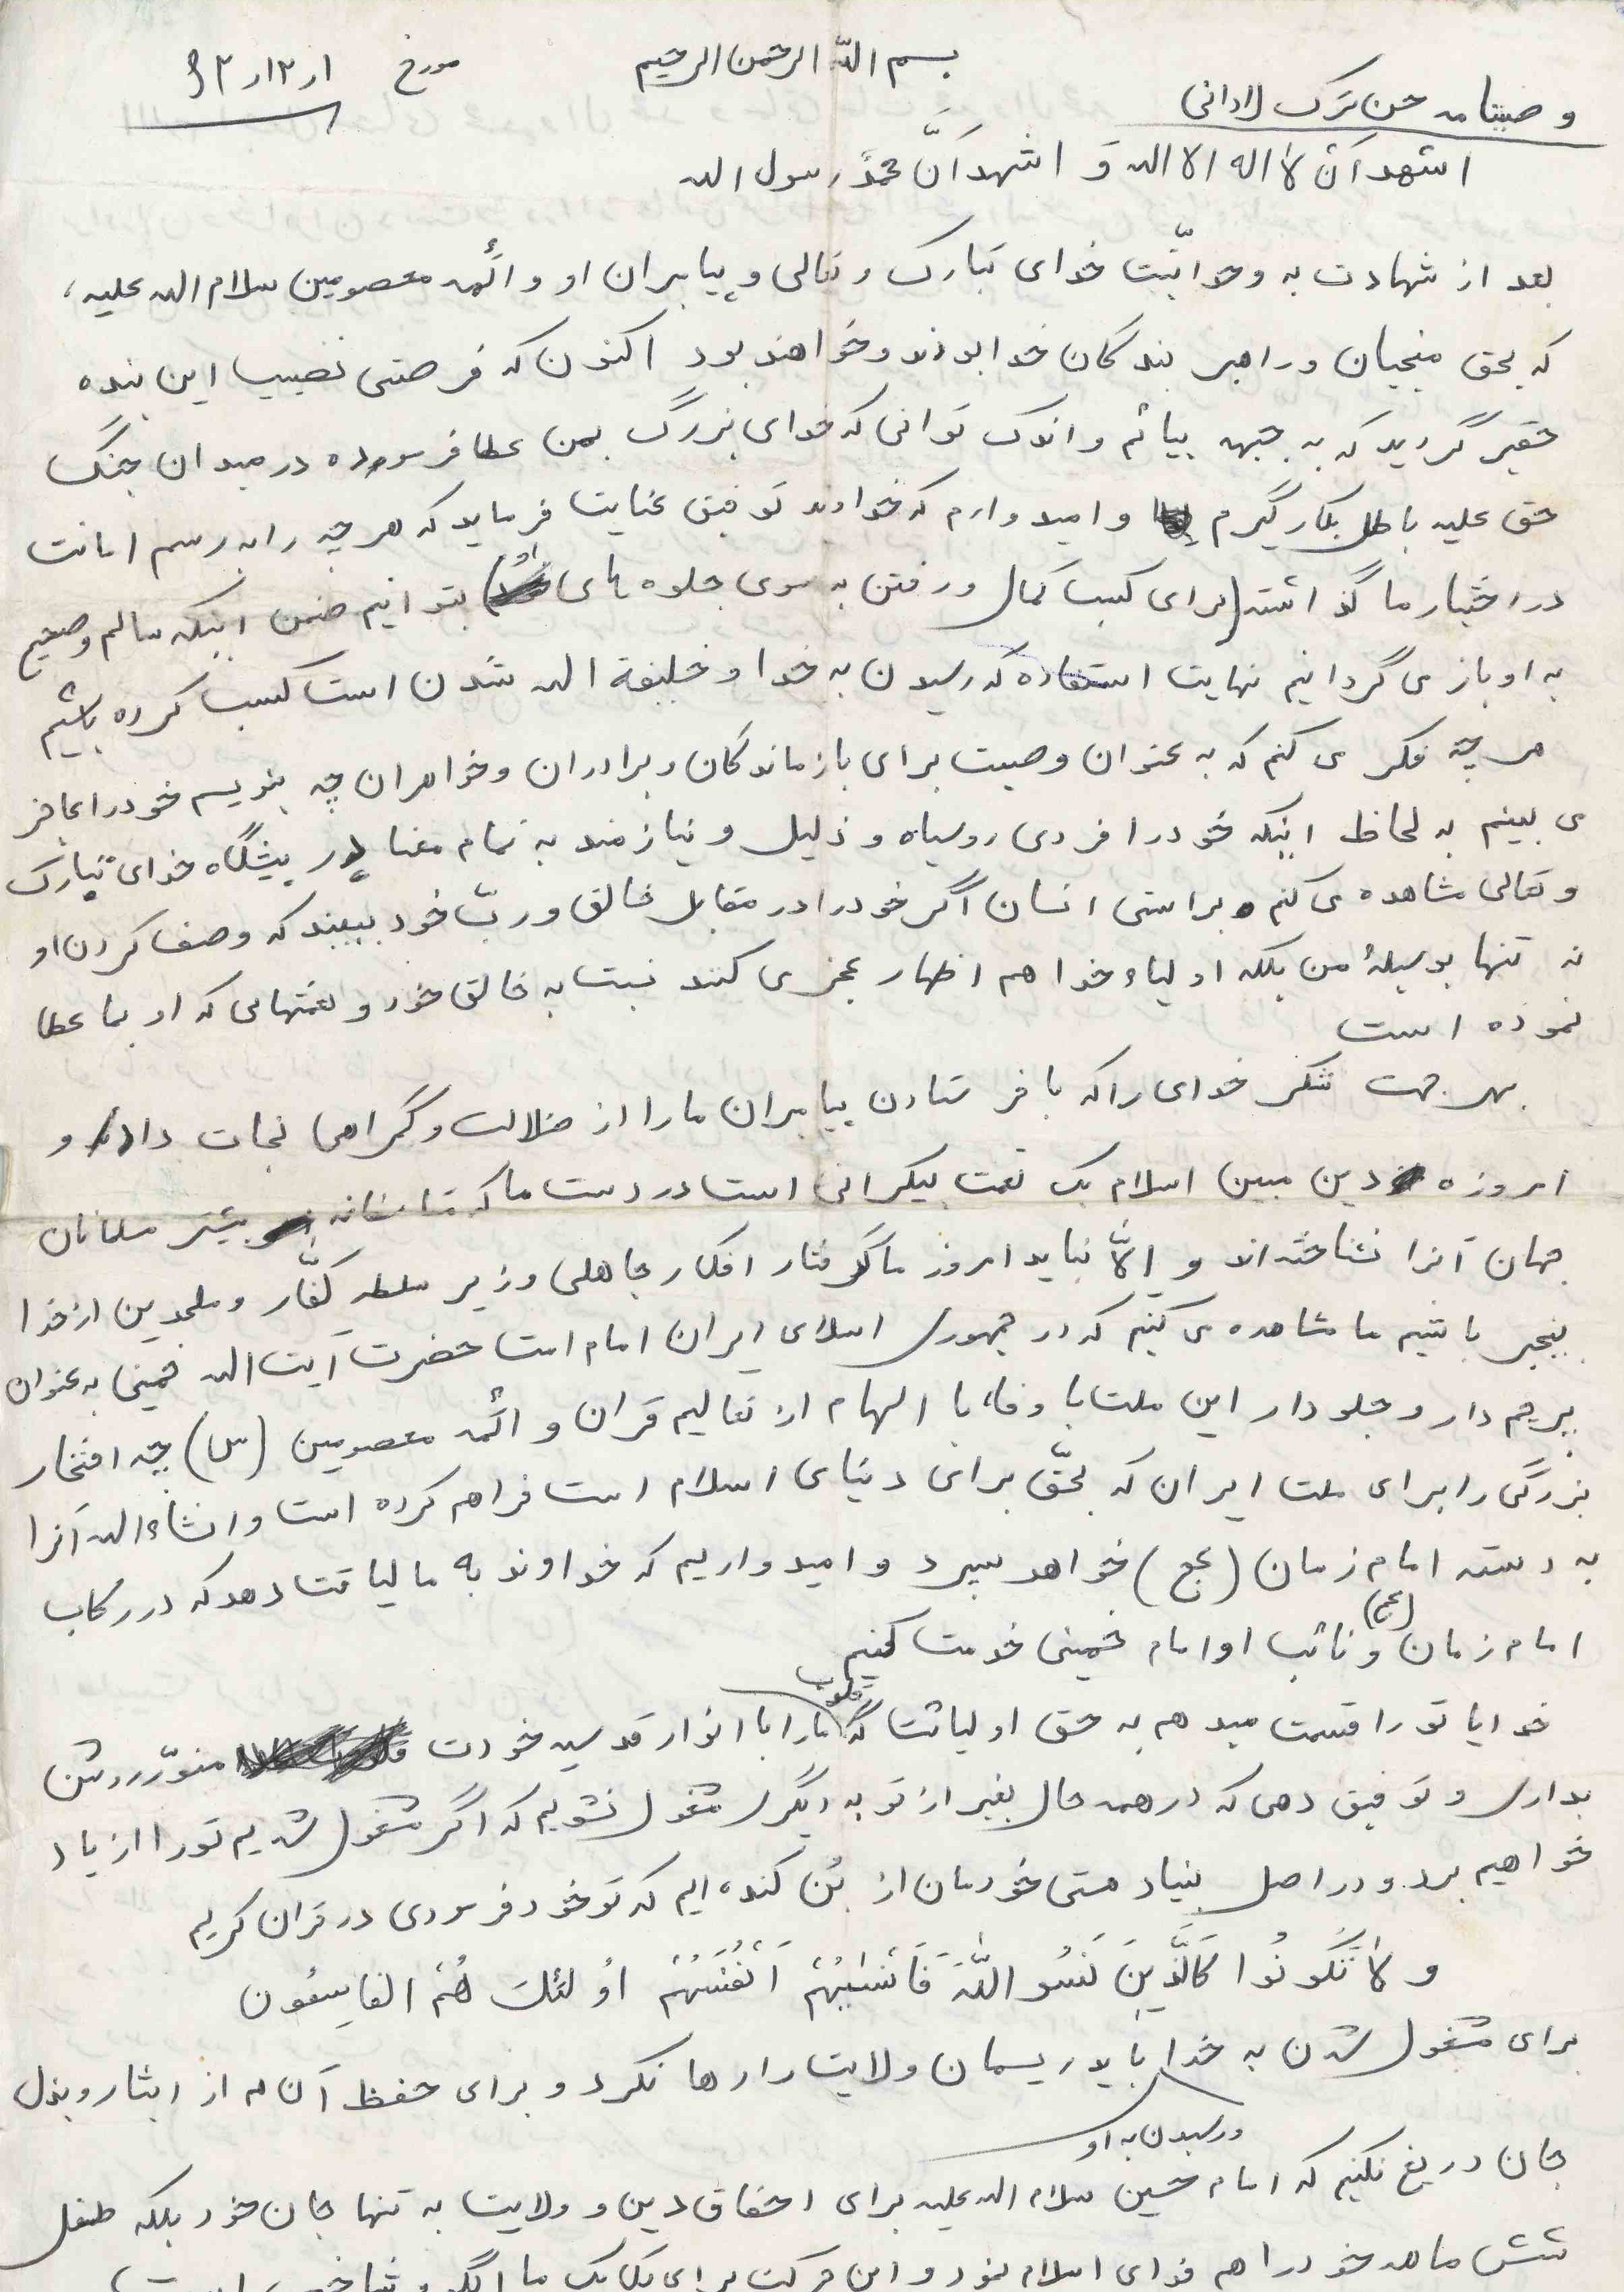 بسم الله الرحمن الرحیم
مورخ
وصیتنامه حسن ترک لادانی
اشهد اَن لا اله الا الله وَ اشهد اَنَّ محمدً رسول الله
بعد از شهادت به وحدانیّت خدای تبارک و تعالی و پیامبران او و ائمه معصومین سلام الله علیه،
که بحق منجیان و راهبر بندگان خدا بودند و خواهند بود اکنون که فرصتی نصیب این بنده
حقیر گردید که به جبهه بیائم و اندک توانی که خدای بزرگ بمن عطا فرموده در میدان جنگ
حق علیه باطل بکار گیرم و امیدوارم که خداوند توفیق عنایت فرماید که هر چه را به رسم امانت
در اختیار ما گذاشته (برای کسب کمال و رفتن به سوی جلوه های او) بتوانیم ضمن اینکه سالم و صحیح
به او باز می گردانیم نهایت استفاده که رسیدن به خدا و خلیفة الله شدن است کسب کرده باشیم
هر چه فکر می کنم که به عنوان وصیت برای بازماندگان و برادران و خواهران چه بنویسم خود را عاجز
می بینم به لحاظ اینکه خود را فردی روسیاه و ذلیل و نیازمند به تمام معنا در پیشگاه خدای تبارک
و تعالی مشاهده می کنم براستی انسان اگر خود را در مقابل خالق و ربّ خود ببیند که وصف کردن او
نه تنها بوسیلهٔ من بلکه اولیاء خدا هم اظهار عجز می کنند نسبت به خالق خود و نعمتهایی که او بما عطا
نموده است
بهر جهت شکر خدای را که با فرستادن پیامبران ما را از ضلالت و گمراهی نجات داد و
امروزه دین مبین اسلام یک نعمت بیکرانی است در دست ما که متاسفانه بیشتر مسلمانان
جهان آنرا نشناخته اند و الاّ نباید امروز ما گرفتار افکار جاهلی و زیر سلطه کفّار و ملحدین از خدا
بیخبر باشیم ما مشاهده می کنیم که در جمهوری اسلامی ایران امام امت حضرت آیت الله خمینی به عنوان
پرچم دار و جلودار این ملت با وفا، با الهام از تعالیم قران و ائمه معصومین (س) چه افتخار
بزرگی را برای ملت ایران که بحقّ برای دنیای اسلام است فراهم کرده است و انشاءالله آنرا
به دسته امام زمان (عج) خواهد سپرد و امیدواریم که خداوند به ما لیاقت دهد که در رکاب
امام زمان (عج) و نائب او امام خمینی خدمت کنیم
خدایا تو را قسمت میدهم به حق اولیائت که قلوب ما را با انوار قدسیه خودت منوّر و روشن
بداری و توفیق دهی که در همه حال بغیر از تو به دیگری مشغول نشویم که اگر مشغول شدیم تو را از یاد
خواهیم برد و در اصل بنیاد هستی خودمان از بُن کنده ایم که تو خود فرمودی در قران کریم
و لاٰ تَکُونُوا کَالَّذینَ نَسُو اللّهَ فَاَنْسٰیهُمْ اَنْفُسَهُمْ اُولئِکَ هُمُ الفاسِقُون
برای مشغول شدن به خدا و رسیدن به او باید ریسمان ولایت را رها نکرد و برای حفظ آن هم از ایثار و بذل
جان دریغ نکنیم که امام حسین سلام الله علیه برای احقاق دین و ولایت نه تنها جان خود بلکه طفل
شش ماهه خود را هم فدای اسلام نمود و این حرکت برای یک یک ما الگو و